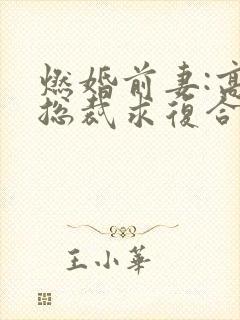 燃婚前妻:高
总裁求復合
王小華